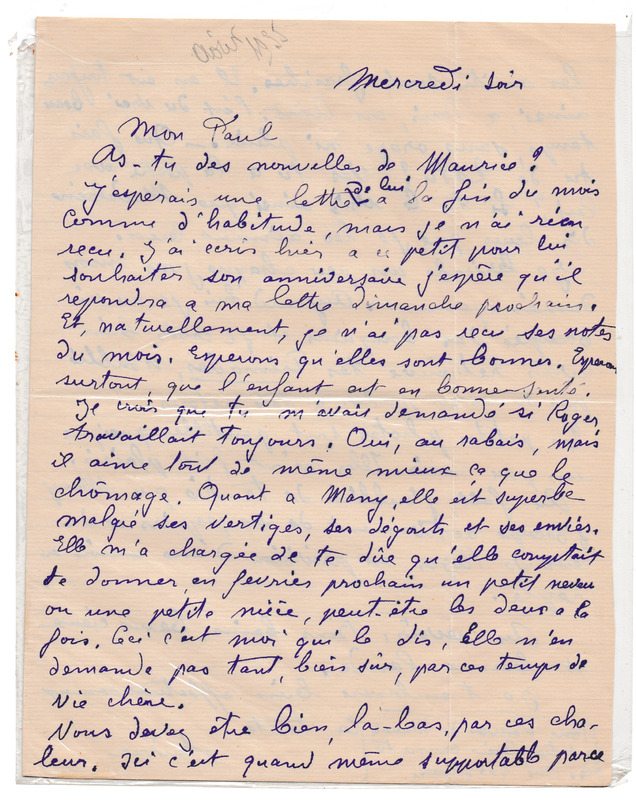 Mercredi soir
Mon Paul
As-tu des nouvelles de Maurice?
J'esperais une lettre de lui a la fin du mois
comme d'habitude, mais je n'ai rien
recu. J'ai ecris hier a ce petit pour lui
souhaiter son anniversaire j'espère qu'il
repondra a ma lettre dimanche prochain.
Et, naturellement, je n'ai pas recu ses notes
du mois. Esperons qu'elles sont bonnes. Esperons
surtout, que l'enfant est en bonne santé.
Je crois que tu m'avais demandé si Roger
travaillait toujours. Oui, au rabais, mais
il aime tout de même mieux ça que le
chômage. Quant a Many, elle est superbe
malgré ses vertiges, ses dégouts et ses envies.
Elle m'a chargée de te dire qu'elle comptait
te donner, en fevrier prochain un petit neveu
ou une petite nièce, peut-être les deux a la
fois. Ceci c'est moi qui le dis, Elle n'en
demande pas tant, bien sûr, par ces temps de
vie chère.
Vous devez être bien, là-bas, par ces cha-
leur. Ici c'est quand même supportable parce